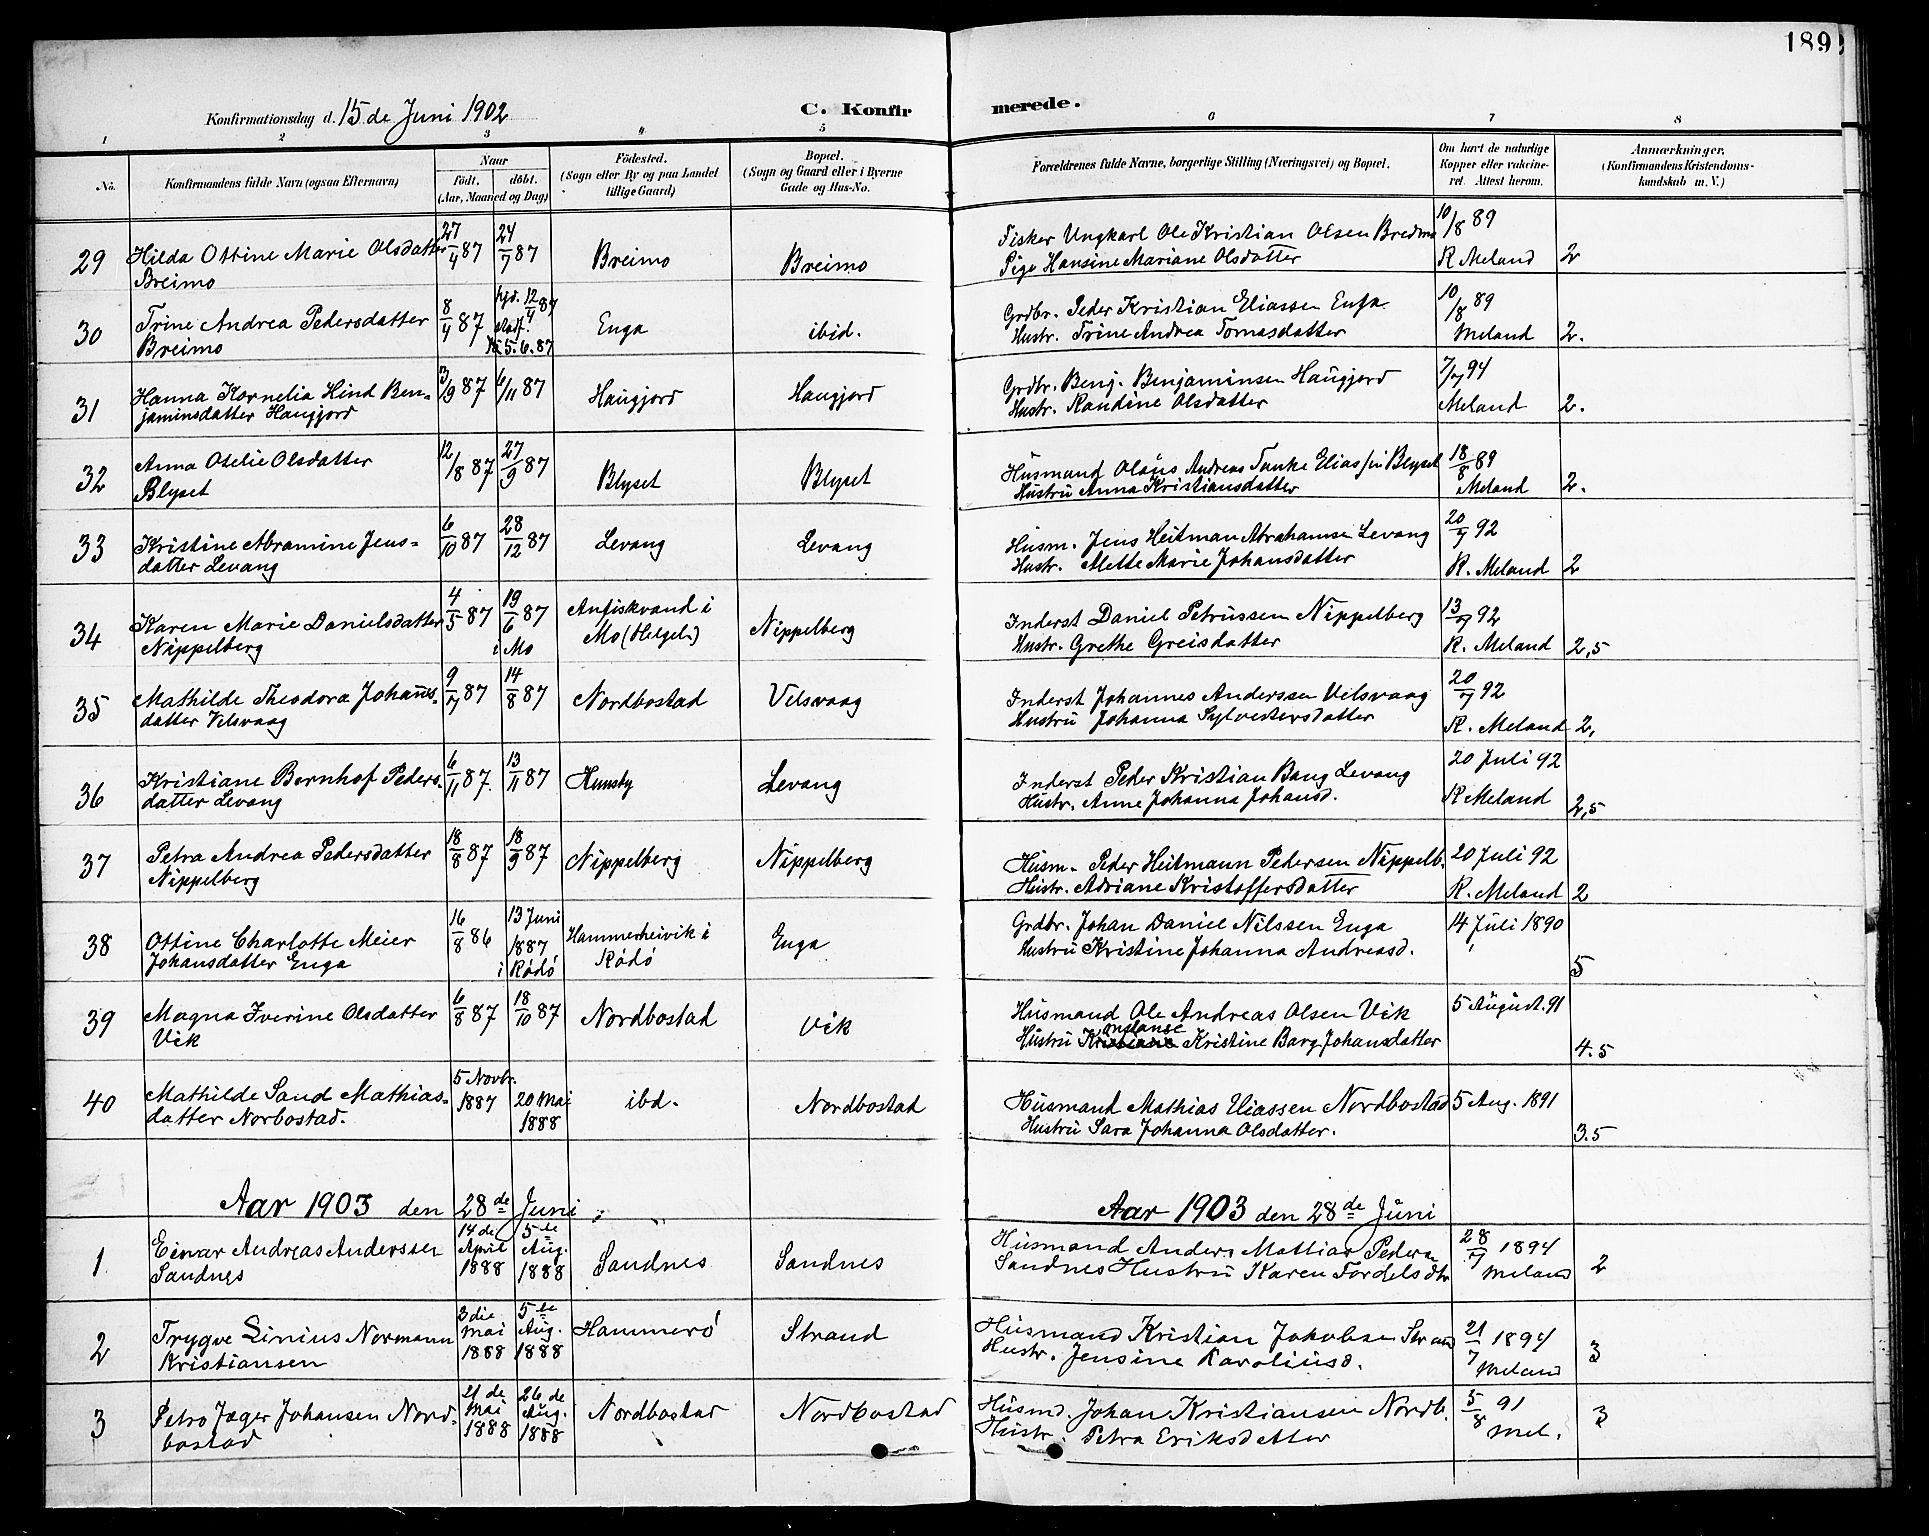 189
Konfirmationsdag d. 15 de Juni 1902
C. Konfirmerede.
1 2 3 4 5 6 7 8
No.
Konfirmandens fulde Navn (ogsaa Efternavn)
Naar
født. døbt.
(Aar, Maaned og Dag)
Fødested.
(Sogn eller By og paa Landet
tillige Gaard)
Bopæl.
(Sogn og Gaard eller i Byerne
Gade og Hus-No.
Forældrenes fulde Navne, borgerlige Stilling (Næringsvei) og Bopæl.
Om havt de naturlige
Kopper eller vakcine-
ret. Attest herom.
Anmærkninger.
(Konfirmandens Kristendoms-
kundskab m. V.)
29 Hilda Ottine Marie Olsdatter 27/4 87 24/7 87 Breimo Breimo Fisker Ungkarl Ole Kristian Olsen Breimo 10/8 89
Breimo Pige Hansine Mariane Olsdatter R Meland 2
30 Trine Andrea Pedersdatter 8/4 87 hjd. 12/4 87 Enga ibid. Grdbr. Peder Kristian Eliassen Enga 10/8 89
Breimo stadf. 5.6.87 Hustr. Trine Andrea Tomasdatter Meland 2.
31 Hanna Kornelia Hind Ben- 3/9 87 6/11 87 Haugjord Haugjord Grdbr. Benj. Benjaminsen Haugjord 7/7 94
jaminsdatter Haugjord Hustr. Randine Olsdatter Meland 2.
32 Anna Otelie Olsdatter 12/8 87 27/9 87 Blyset Blyset Husmand Olaus Andreas Tanke Eliassen Blyset 18/8 89
Blyset Hustru Anna Kristiansdatter Meland 2.
33 Kristine Abramine Jens- 6/10 87 28/12 87 Levang Levang Husm. Jens Heitman Abrahamsen Levang 20/7 92
datter Levang Hustr. Mette Marie Johansdatter R. Meland 2
34 Karen Marie Danielsdatter 4/5 87 19/6 87 i Mo Mo (Helgel.) Nippelberg Inderst Daniel Petrussen Nippelberg 13/7 92
Nippelberg Hustr. Grethe Greisdatter R. Meland 2,5
35 Mathilde Theodora Johannes- 9/7 87 14/8 87 Nordbostad Velsvaag Inderst Johannes Anderssen Velsvaag 20/7 92
datter Velsvaag Hustru Johanna Sylvestersdatter R. Meland 2,
36 Kristiane Bernhof Peders- 6/11 87. 13/11 87 Husby Levang Inderst Peder Kristian Bang Levang 20 Juli 92
datter Levang Hustr. Anne Johanna Johansd. R Meland 2,5
37 Petra Andrea Pedersdatter 18/8 87 18/9 87 Nippelberg Nippelberg Husm. Peder Heitmann Pedersen Nippelb. 20 Juli 92
Nippelberg Hustr. Adriane Kristoffersdatter R. Meland 2
38 Ottine Charlotte Meier 16/8 86 13 Juni 1887 i Rödö Hammerheivik i Rödö Enga Grdbr. Johan Daniel Nilssen Enga 14 Juli 1890
Johansdatter Enga Hustru Kristine Johanna Andreasd. 5
39 Magna Iverine Olsdatter 6/8 87 18/10 87 Nordbostad Vik Husmand Ole Andreas Olsen Vik 5 August. 91
Vik Hustru Kristine Barg Johansdatter 4.5
40 Mathilde Sand Mathias- 5 Novbr. 1887 20 Mai 1888 ibd. Nordbostad Husmand Mathias Eliassen Nordbostad 5 Aug. 1891
datter Norbostad. Hustru Sara Johanna Olsdatter. 3.5
Aar 1903 den 28de Juni Aar 1903 den 28de Juni
1 Einar Andreas Anderssen 14 de April 1888 5te Aug. 1888 Sandnes Sandnes Husmand Anders Mathias Peders 28/7 1894
Sandnes Sandnes Hustru Karen Tordelsdtr Meland 2
2 Trygve Linius Normann 3 die Mai 1888 5te Aug. 1888 Hammerö Strand Husmand Kristian Jakobsen Strand 21/7 1894
Kristiansen Hustr. Jensine Karoliusd. Meland 3
3 Petro Jæger Johansen Nord- 21 de Mai 1888 26 de Aug. 1888 Nordbostad Nordbostad Husmd. Johan Kristiansen Nordb. 5/8 91
bostad Hustr. Petra Eriksdatter Mel. 3